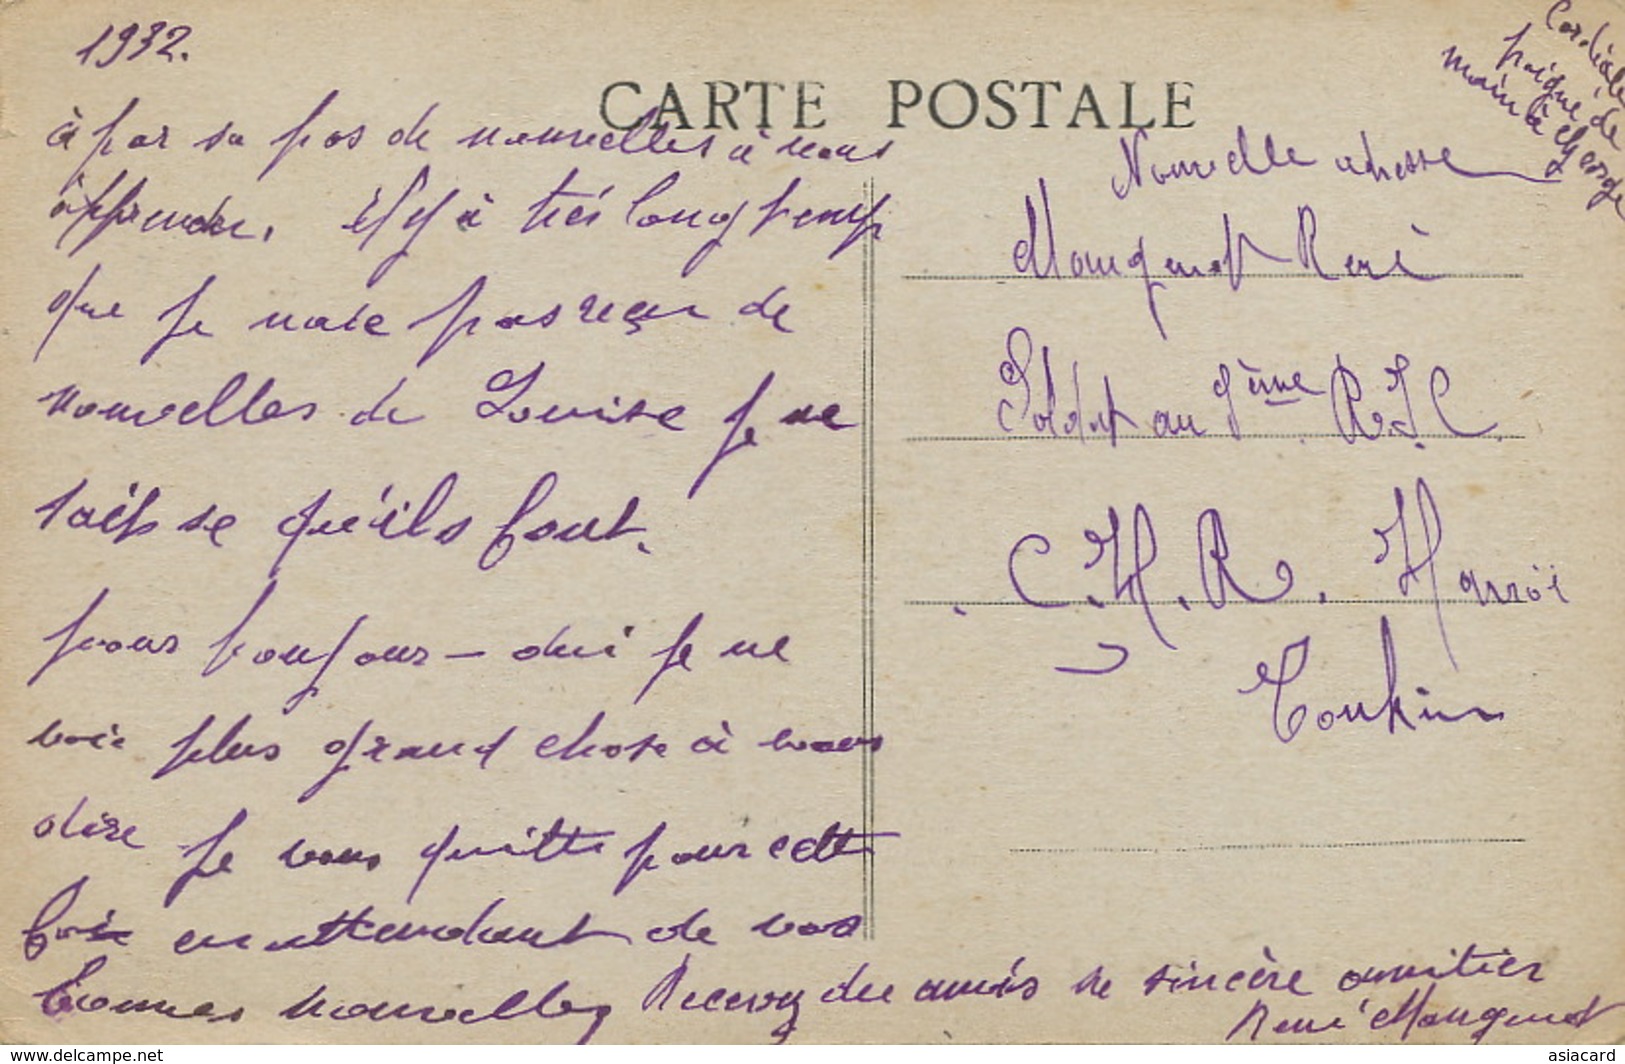 1932.
à par sa pas de nouvelles à vous
apprendre, il y à très long temp
que je naie pas reçu de
nouvelles de Louise je ne
sais se qu'ils font.
pour toujour-dui je ne
voie plus grand chose à vous
dire je vous quitte pour cette
fois en attendant de vos
bonnes nouvelles Recevoz des amis ne sincère amitier
René Mougenot
CARTE POSTALE
Cordiale
poigné de
main à George
Nouvelle adresse
Mougenot René
Soldat au 9ème R.I.C.
C.H.R. Hanoï
Tonkin
delcampe.net
asiacard